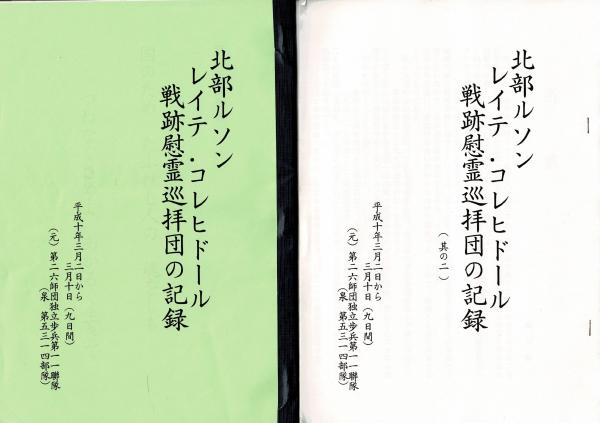 北部ルソン
レイテ・コレヒドール
戦跡慰霊巡拝団の記録
平成十年三月二日から
三月十日(九日間)
(元)第二六師団独立歩兵第一一聯隊
(泉 第五三一四部隊)
北部ルソン
レイテ・コレヒドール
戦跡慰霊巡拝団の記録
(其の二)
平成十年三月二日から
三月十日(九日間)
(元)第二六師団独立歩兵第一一聯隊
(泉 第五三一四部隊)